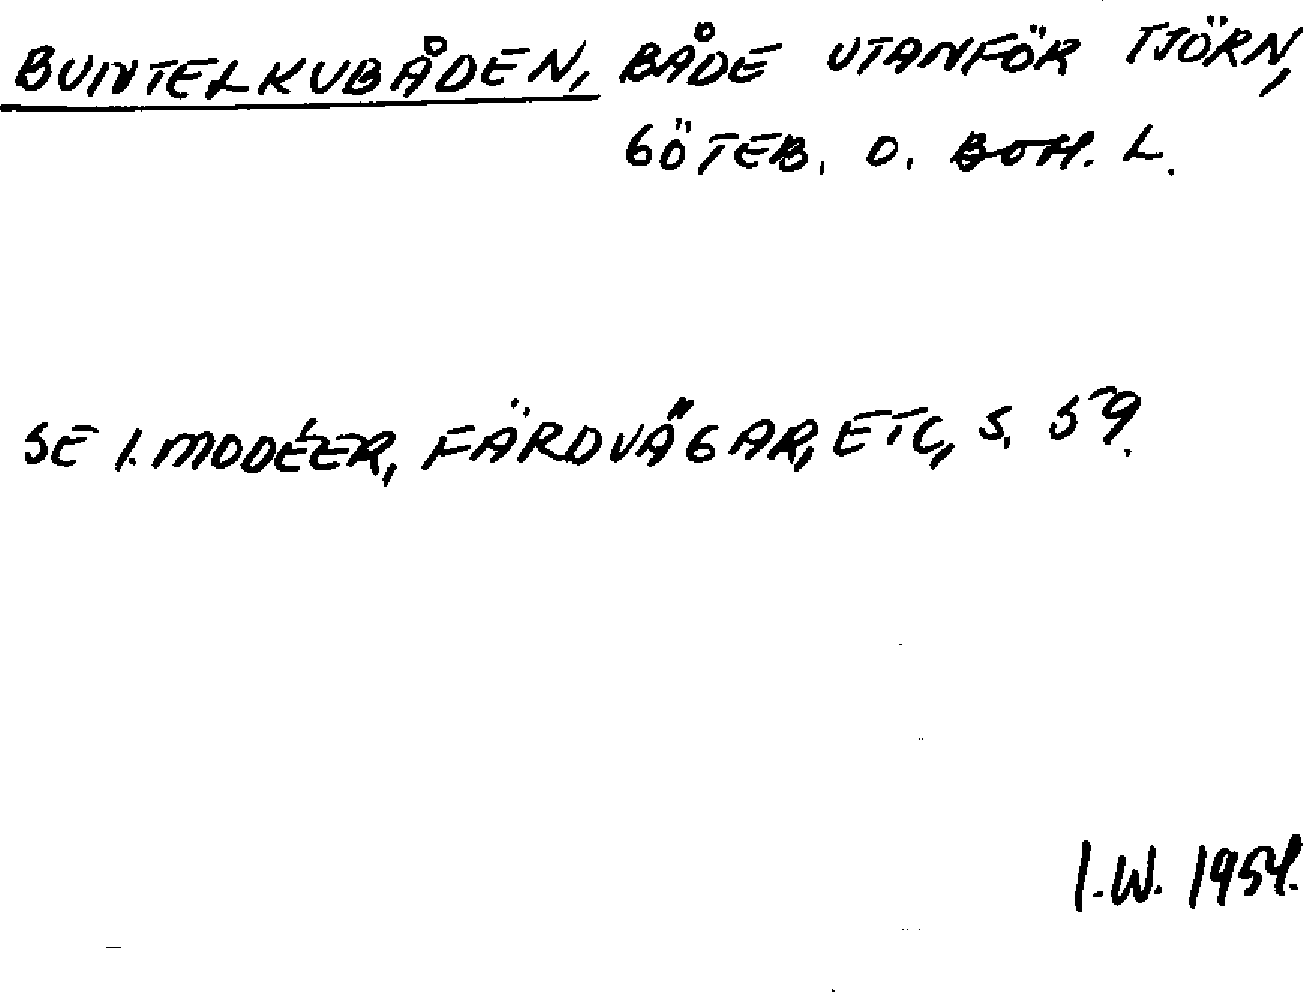 BUNTELKUBÅDEN, BÅDE UTANFÖR TJÖRN,
GÖTEB. O. BOH. L.
SE I. MODÉER, FÄRDVÄGAR, ETC, S. 59.
I.W. 1954.